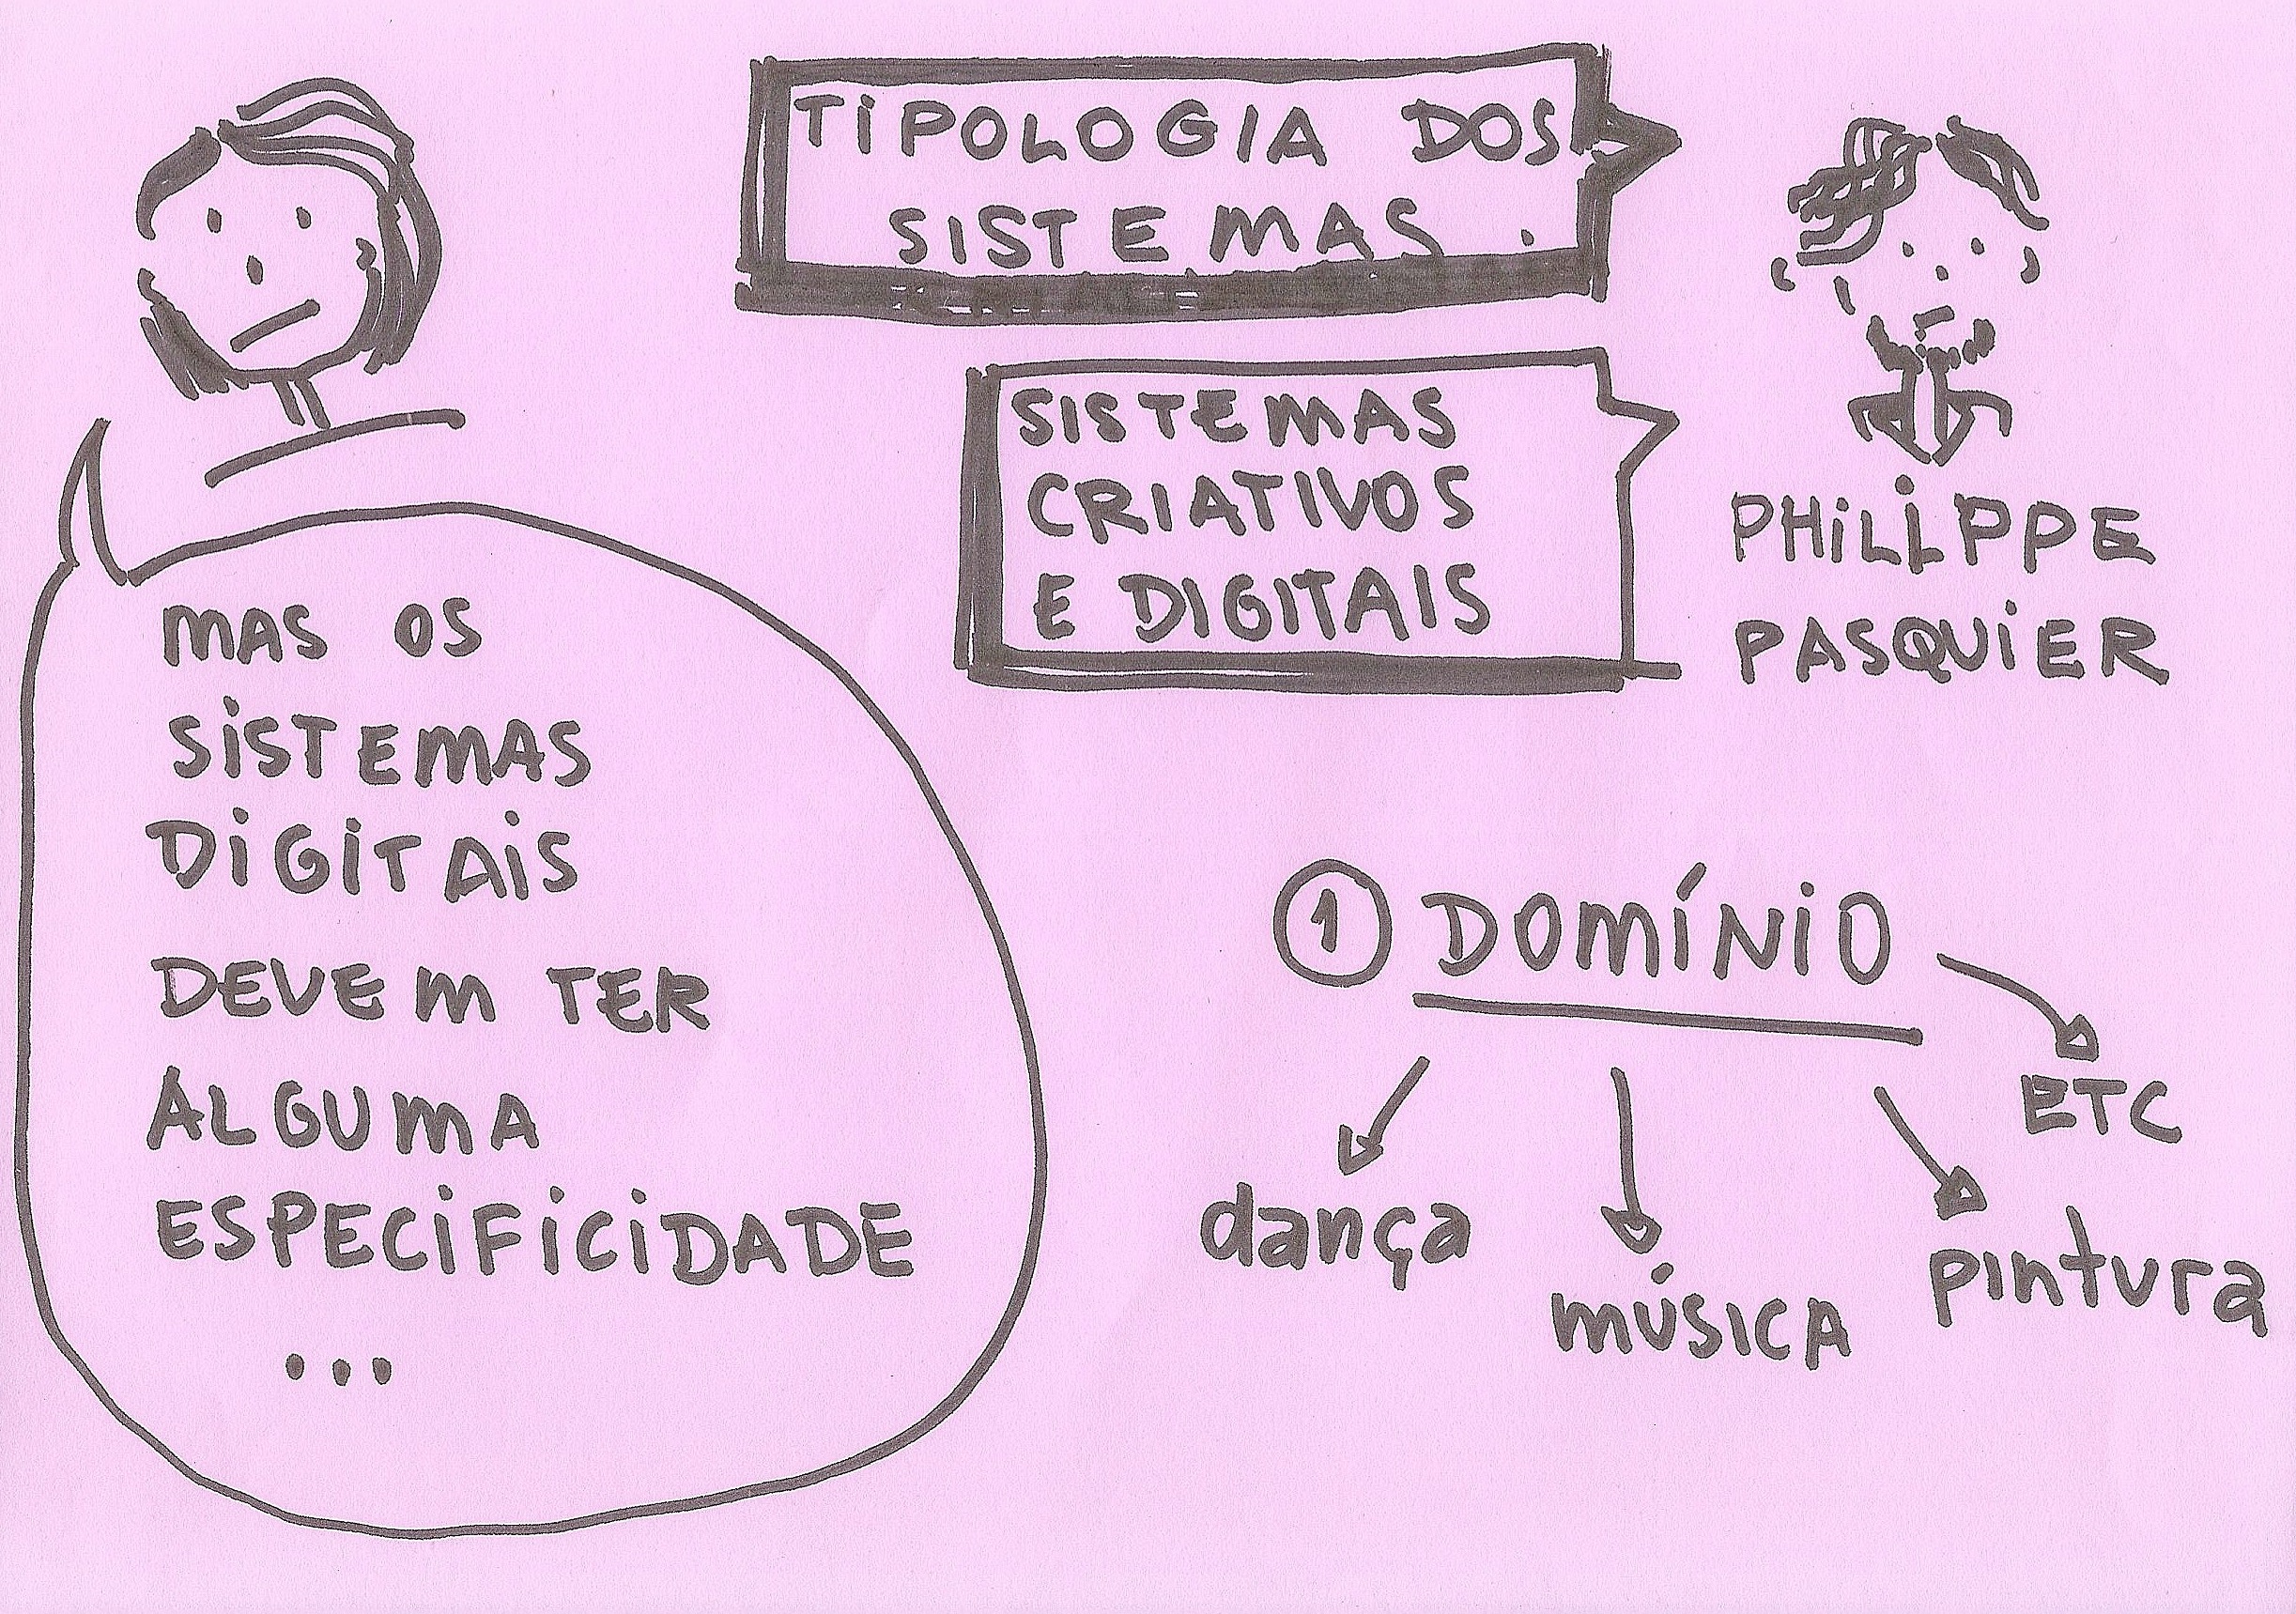 TIPOLOGIA DOS
SISTEMAS.
SISTEMAS
CRIATIVOS
E DIGITAIS
PHILIPPE
PASQUIER
MAS OS
SISTEMAS
DIGITAIS
DEVEM TER
ALGUMA
ESPECIFICIDADE
...
1 DOMÍNIO
dança
música
pintura
ETC